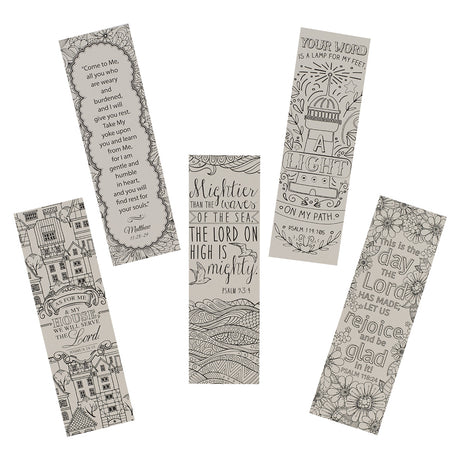 "Come to Me,
all you who
are weary
and
burdened,
and I will
give you rest.
Take My
yoke upon
you and learn
from Me,
for I am
gentle and
humble
in heart,
and you will
find rest for
your souls."
Matthew
YOUR WORD
IS A LAMP FOR MY FEET
A
LIGHT
ON MY PATH.
PSALM 119:105
Mightier
THAN THE waves
OF THE SEA
THE LORD ON
HIGH IS
mighty.
PSALM 93:4
AS FOR ME
& MY
HOUSE
WE WILL SERVE
THE Lord
This is the
day
THE Lord
HAS MADE
LET US
rejoice
and be
glad
in it!
PSALM 118:24